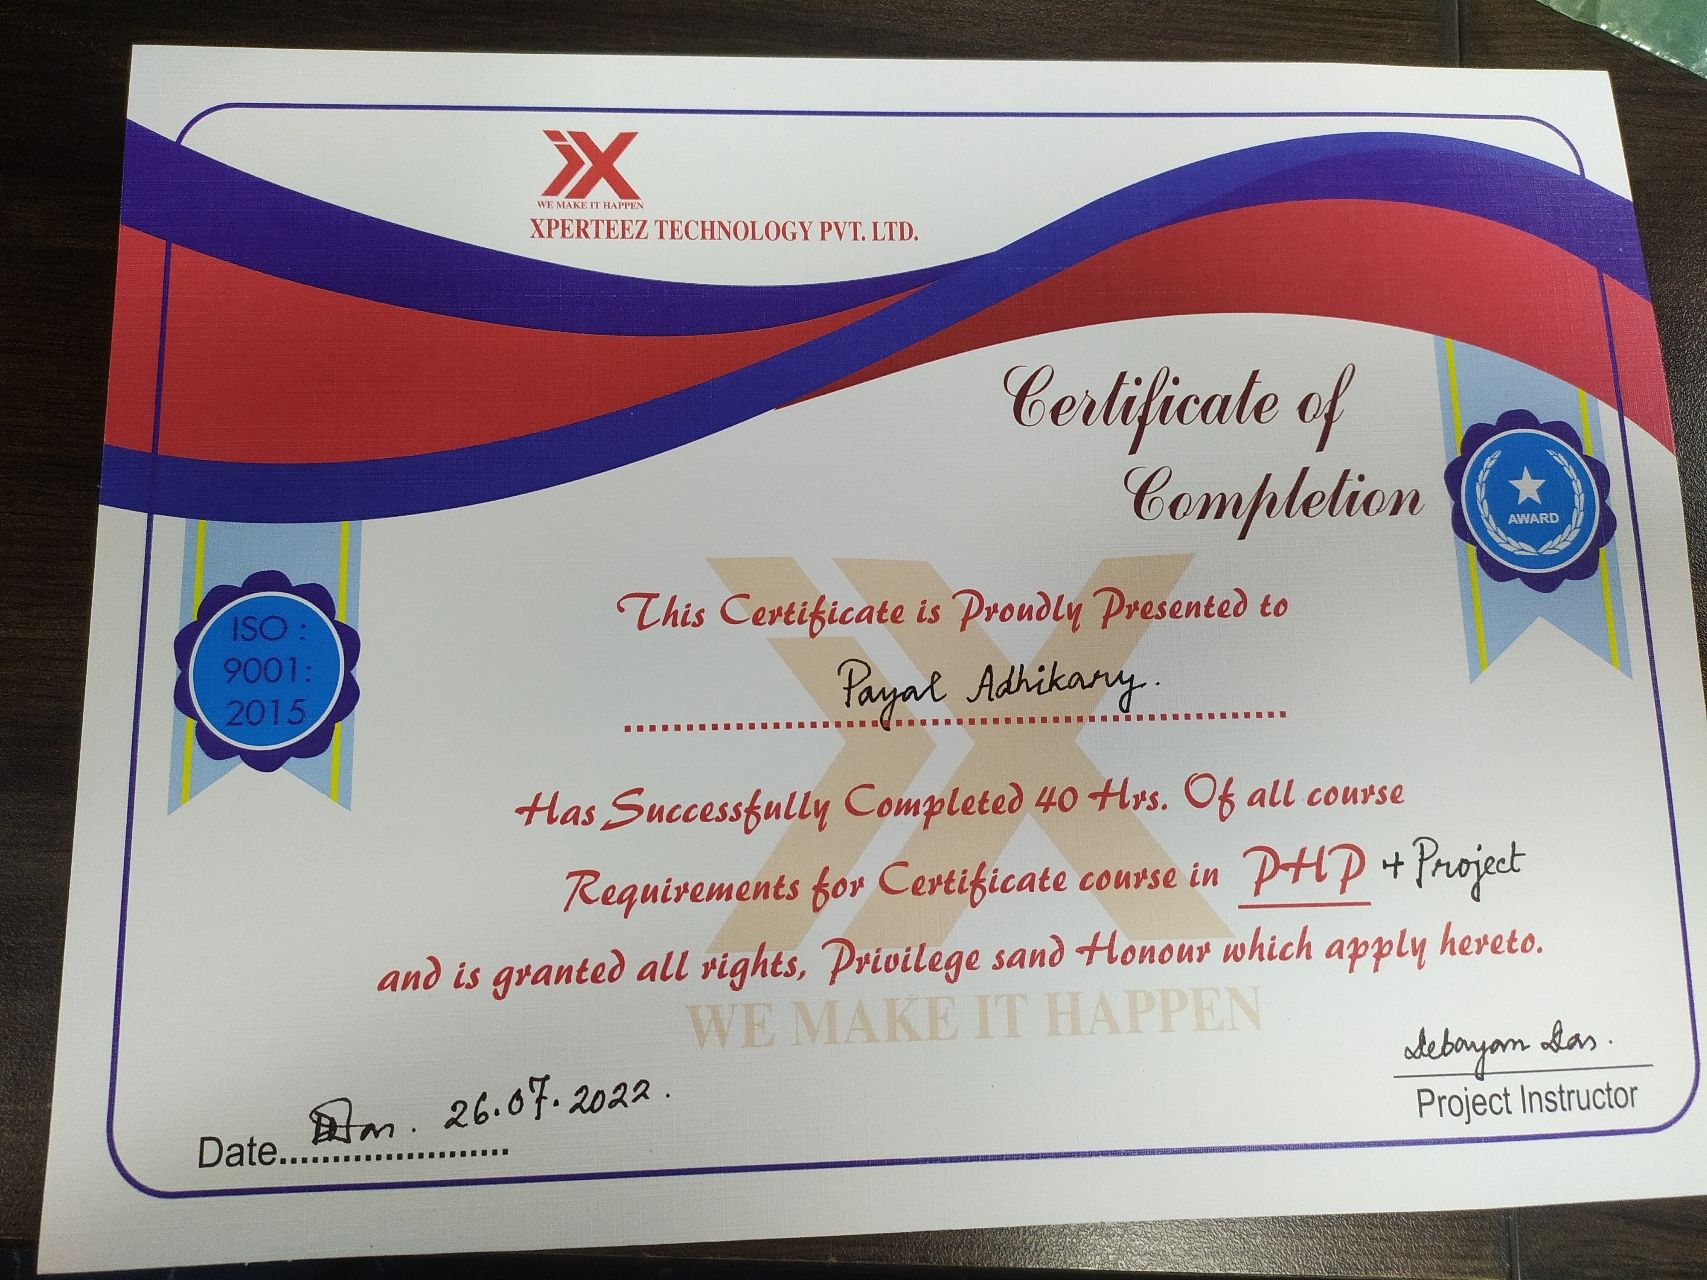 WE MAKE IT HAPPEN
XPERTEEZ TECHNOLOGY PVT. LTD.
Certificate of
Completion
AWARD
ISO :
9001:
2015
This Certificate is Proudly Presented to
Payal Adhikary.
Has Successfully Completed 40 Hrs. Of all course
Requirements for Certificate course in PHP + Project
and is granted all rights, Privilege sand Honour which apply hereto.
WE MAKE IT HAPPEN
Debayan Das.
Project Instructor
Date...................... 26.07.2022.